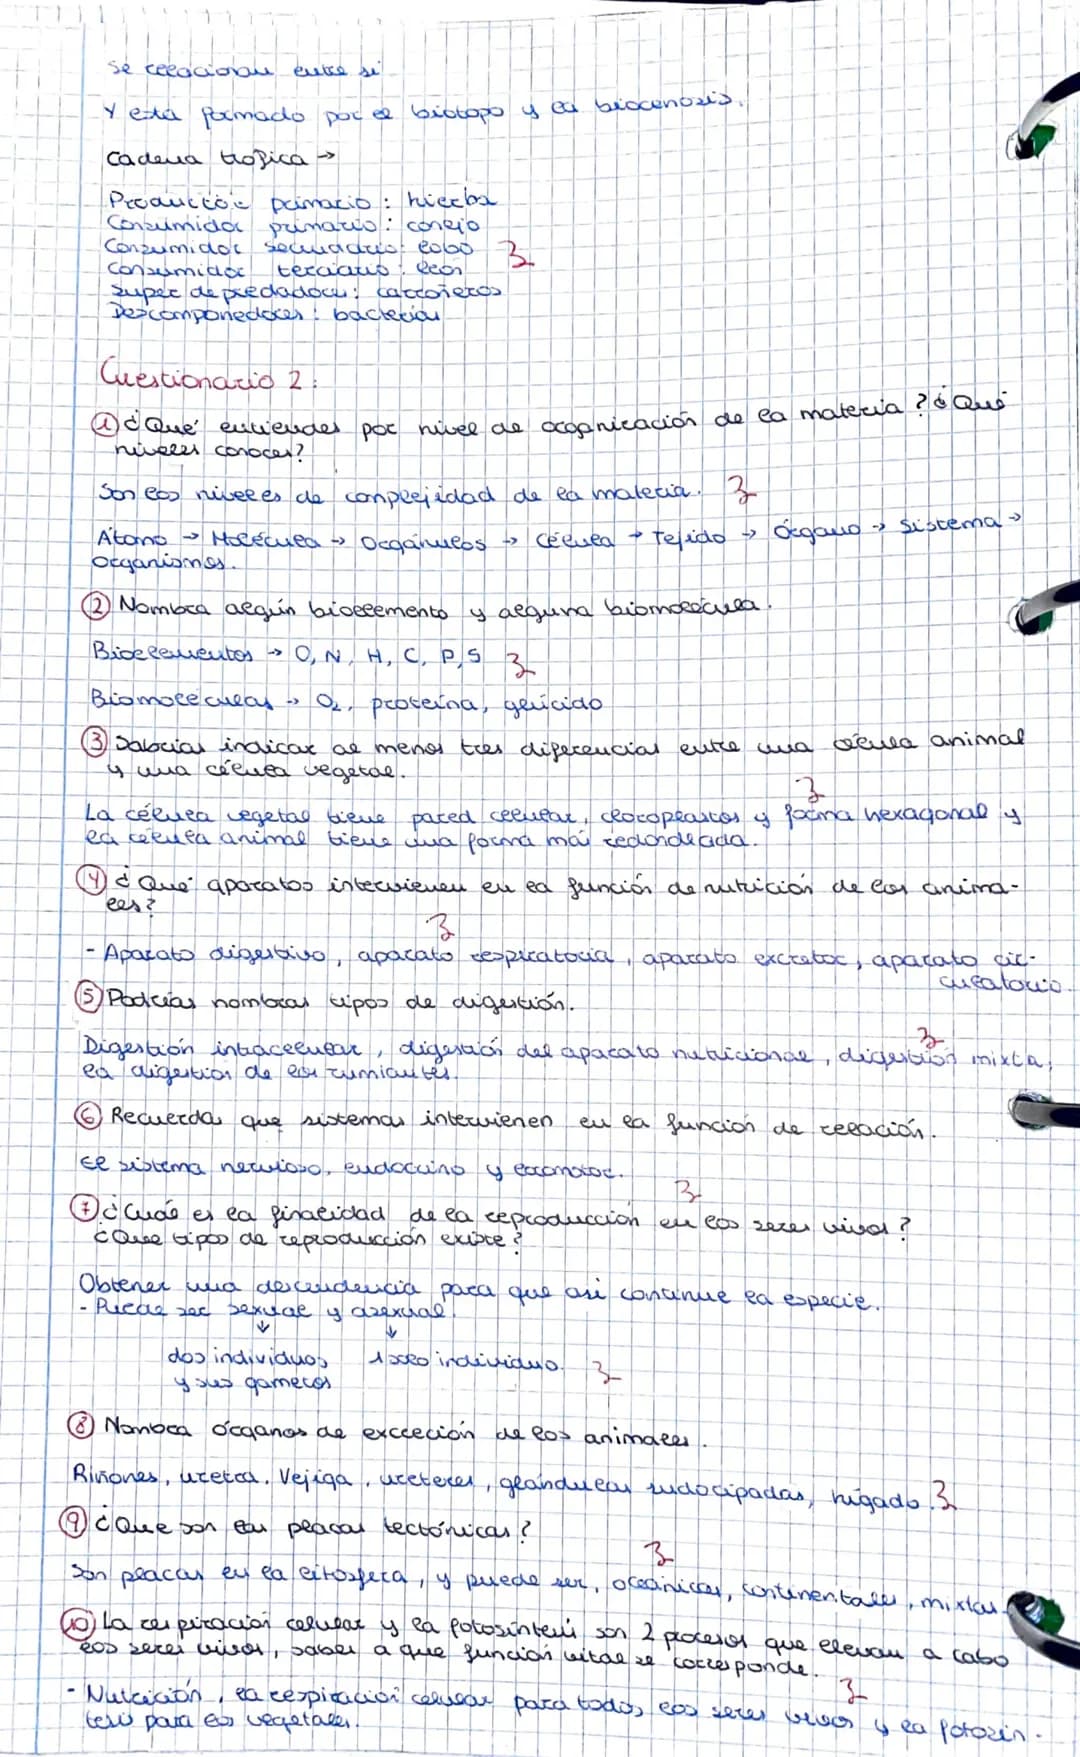 se relacionan entre sí
Y está formado por el biotopo y la biocenosis.
Cadena trofica →
Productor primario : hierba
Consumidor primario : conejo
Consumidor secundario : lobo
Consumidor terciario : león
Super depredadores : carroñeros
Descomponedores : bacterias
Cuestionario 2 :
① ¿Qué entiendes por nivel de organización de la materia ? ¿Qué
niveles conoces?
Son los niveles de complejidad de la materia.
Átomo → Molécula → Orgánulos → Célula → Tejido → Órgano → Sistema →
Organismos.
② Nombra algún bioelemento y alguna biomolécula.
Bioelementos → O, N, H, C, P, S
Biomoléculas → O₂, proteína, glúcido
③ Sabrías indicar al menos tres diferencias entre una célula animal
y una célula vegetal.
La célula vegetal tiene pared celular, cloroplastos y forma hexagonal y
la célula animal tiene una forma más redondeada.
④ ¿Qué aparatos intervienen en la función de nutrición de los anima-
les?
- Aparato digestivo, aparato respiratoria, aparato excretor, aparato cir-
culatorio.
⑤ Podrías nombrar tipos de digestión.
Digestión intracelular, digestión del aparato nutricional, digestión mixta,
la digestion de los rumiantes.
⑥ Recuerda que sistemas intervienen en la función de relación.
El sistema nervioso, endocrino y locomotor.
⑦ ¿Cuál es la finalidad de la reproducción en los seres vivos?
¿Que tipos de reproducción existe?
Obtener una descendencia para que así continue la especie.
- Puede ser sexual y asexual.
↓ ↓
dos individuos 1 solo individuo.
y sus gametos
⑧ Nombra órganos de excreción de los animales.
Riñones, uretra, Vejiga, ureteres, glándulas sudoríparas, hígado.
⑨ ¿Que son las placas tectónicas?
Son placas en la litosfera, y puede ser, oceánicas, continentales, mixtas.
⑩ La respiración celular y la fotosíntesis son 2 procesos que llevan a cabo
los seres vivos, sabes a que función vital se corresponde.
- Nutrición, la respiración celular para todos los seres vivos y la fotosín-
tesis para los vegetales.